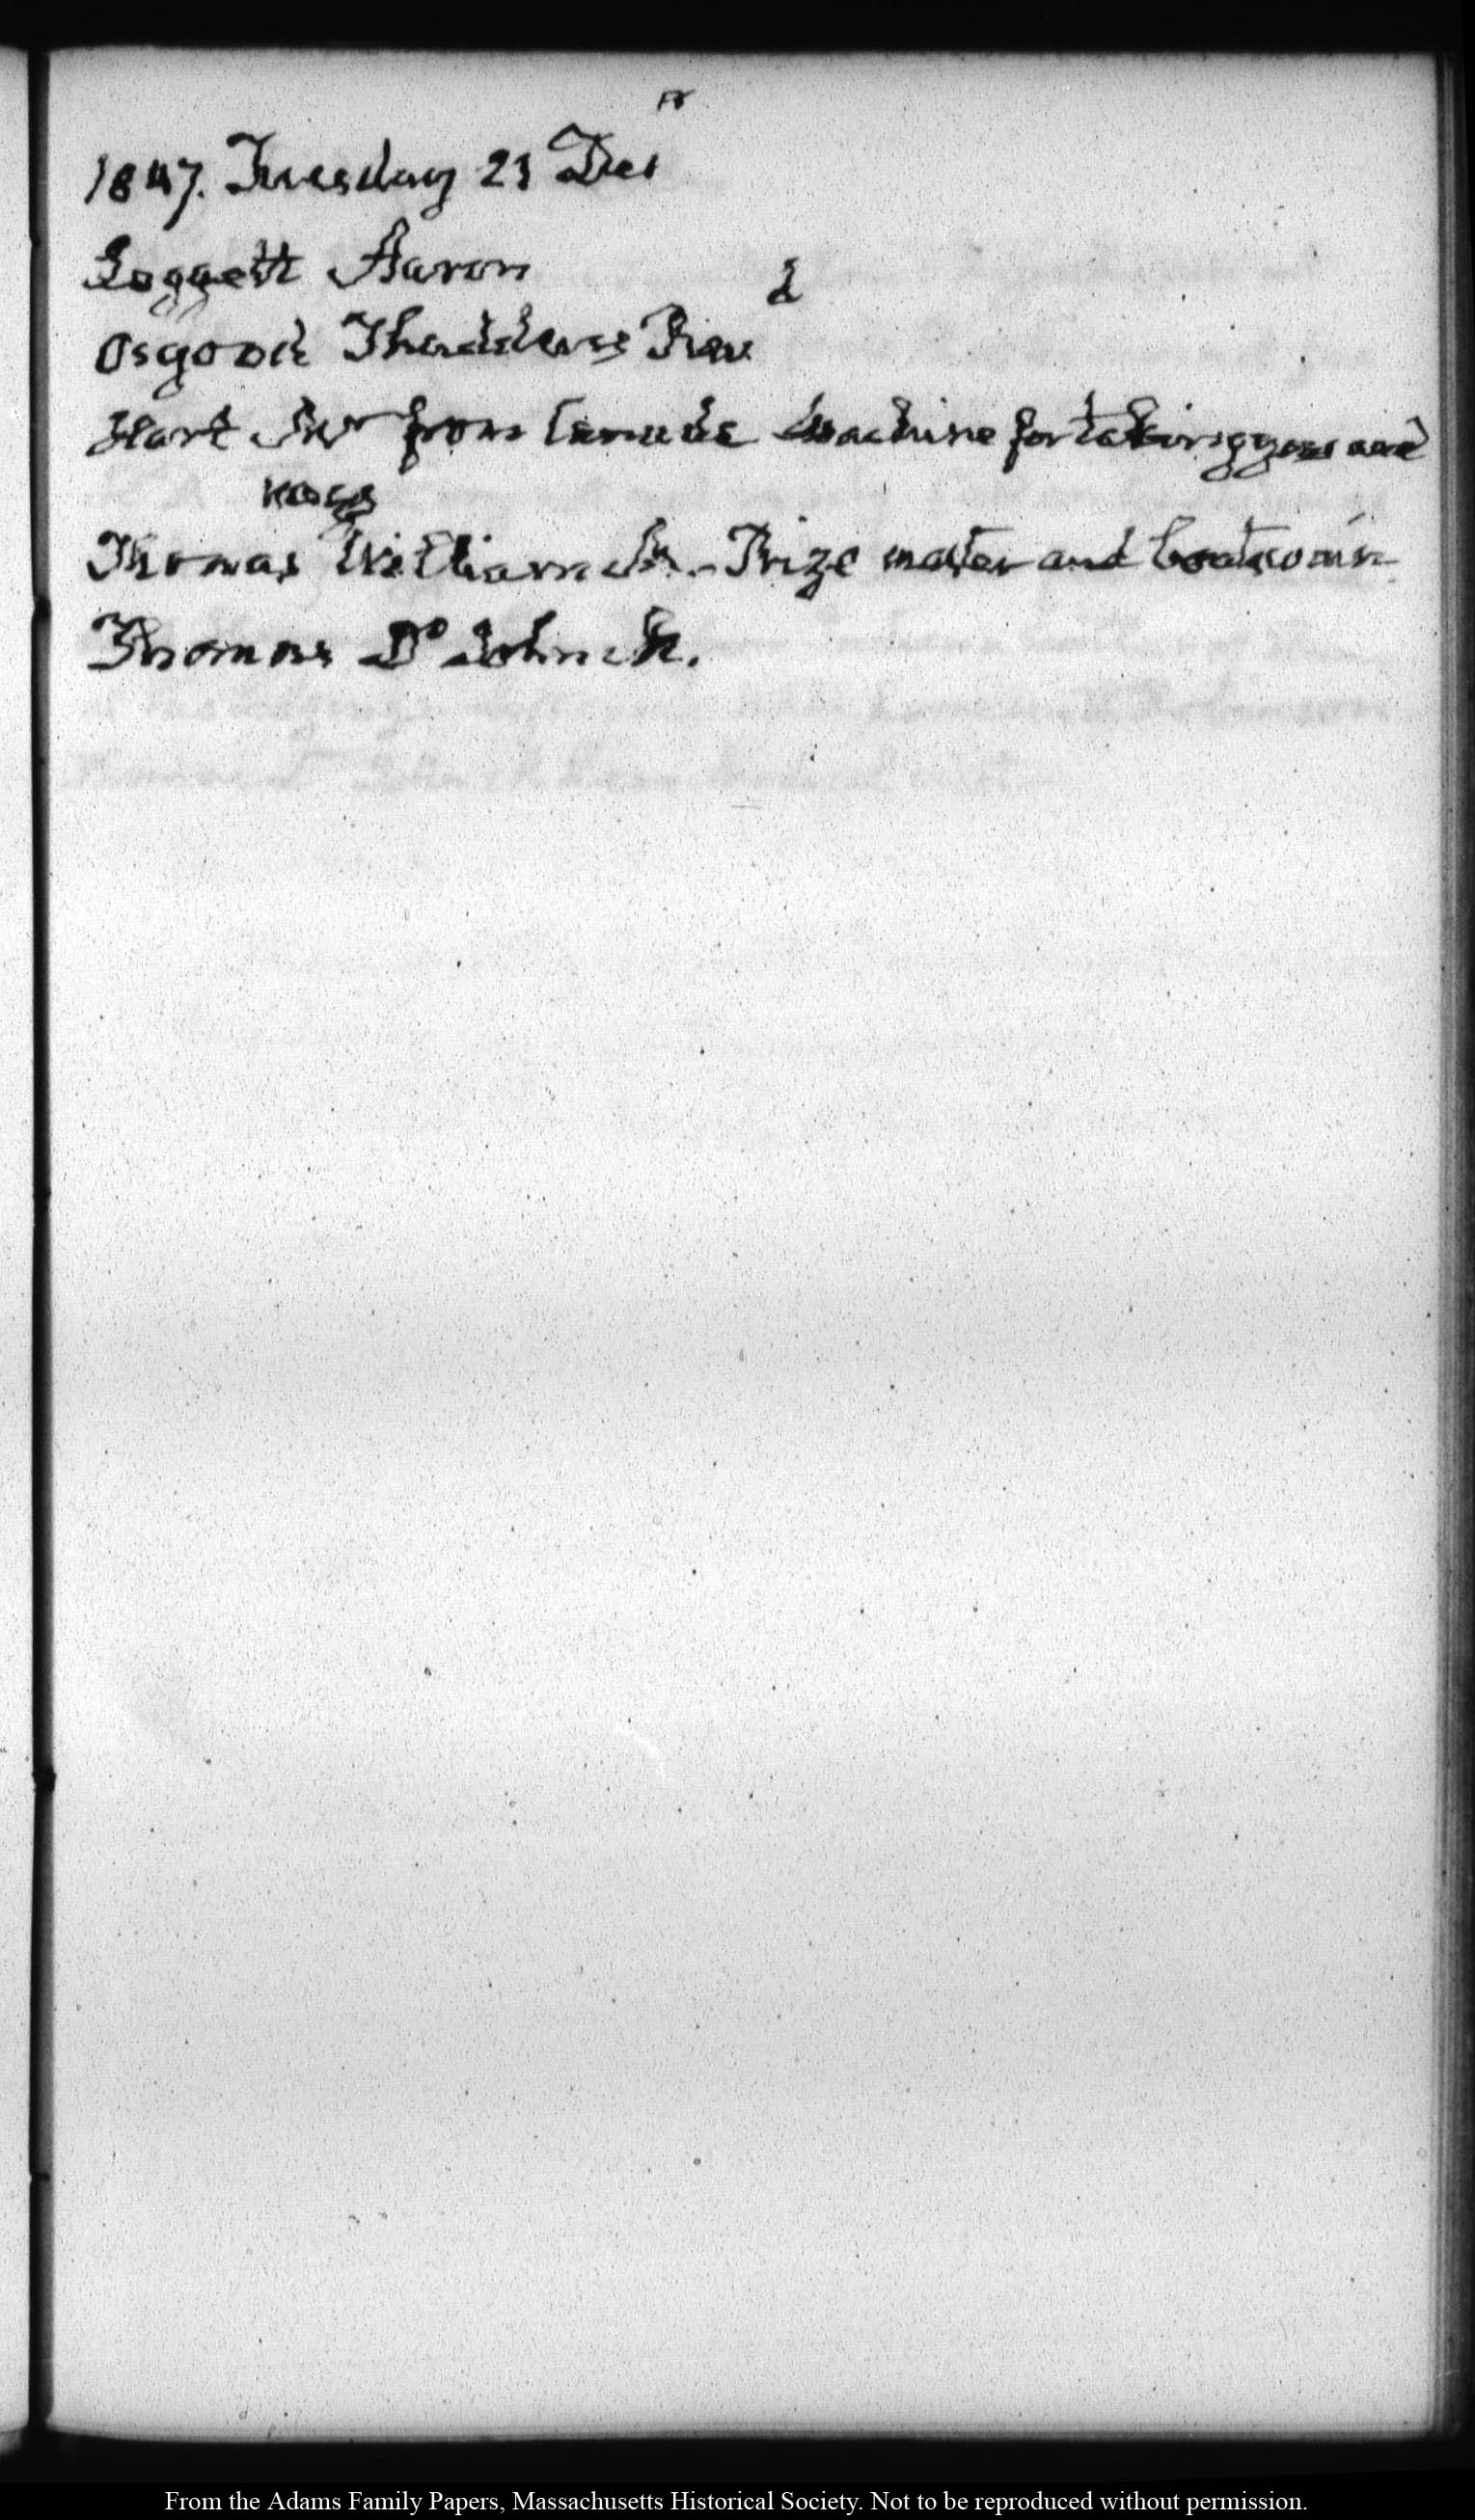 1847. Tuesday 21 Decr
Leggett Aaron
Osgood Thaddeus Revd
Hart from Canada Machine for taking and
Thomas William Sr. Prize master and boatswain
Thomas Do John Sr.
From the Adams Family Papers, Massachusetts Historical Society. Not to be reproduced without permission.